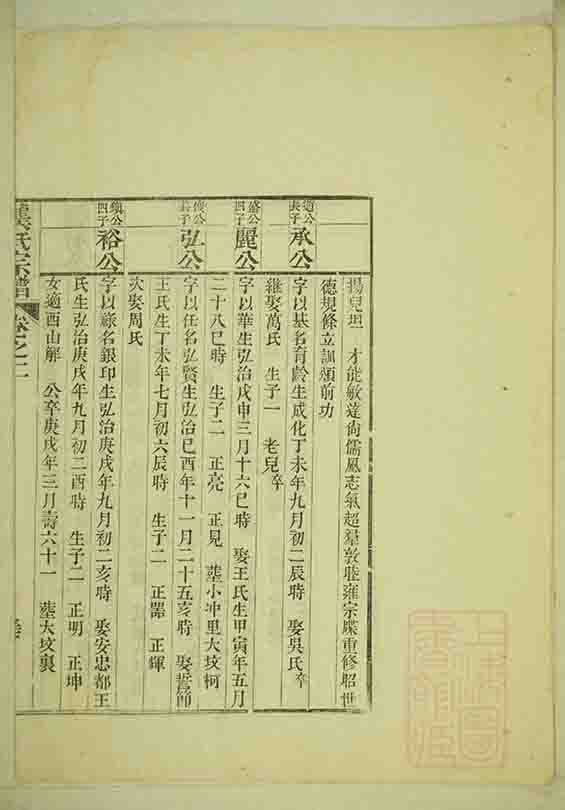 揚兒坦 才能敏達尚儒風志氣超羣敦睦雍宗牒重修昭世
德規條立訓頌前功
道公長子 承公 字以基名育齡生成化丁未年九月初二辰時 娶吳氏卒
繼娶萬氏 生子一 老兒卒
盛公四子 麗公 字以華生弘治戊申三月十六巳時 娶王氏生甲寅年五月
二十八巳時 生子二 正亮 正見 塟小冲里大坟柯
公長子 弘公 字以任名弘賢生弘治己酉年十一月二十五亥時 娶誓節
王氏生丁未年七月初六辰時 生子二 正器 正輝
次娶周氏
公四子 裕公 字以祿名銀印生弘治庚戌年九月初二亥時 娶安忠都王
氏生弘治庚戌年九月初二酉時 生子二 正明 正坤
女適西山解 公卒庚戌年三月壽六十一 塟大坟裏
氏宗譜 卷之二